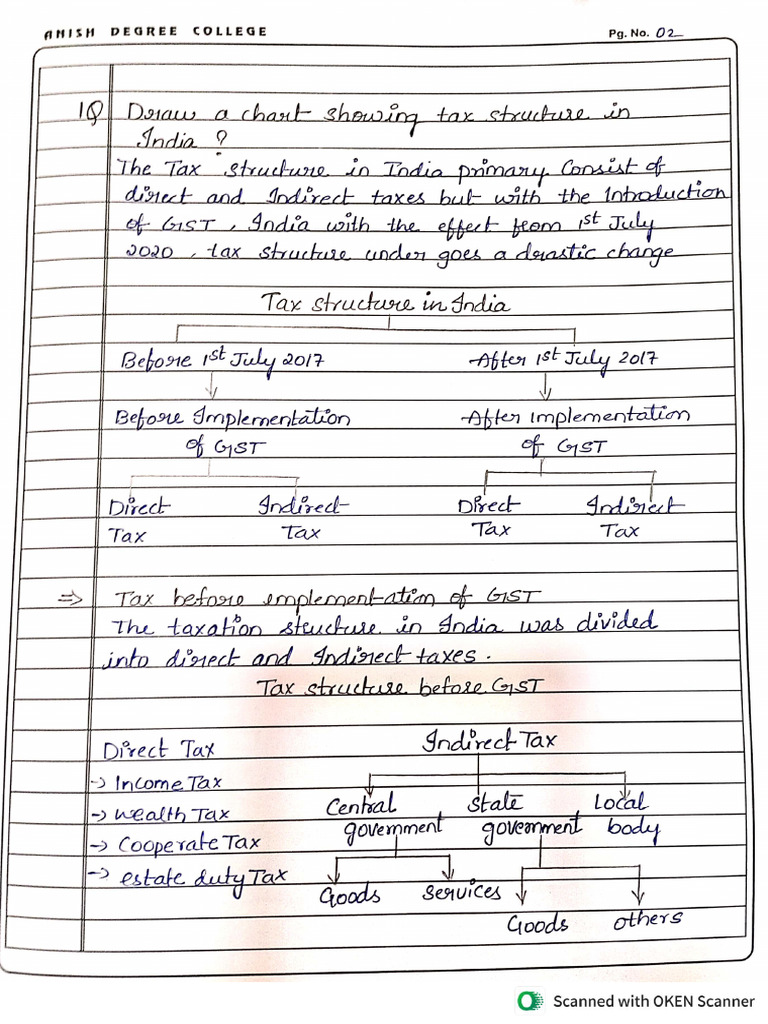 ANISH DEGREE COLLEGE
Pg. No. 02
1Q Draw a chart showing tax structure in
India ?
The Tax structure in India primary consist of
direct and Indirect taxes but with the Introduction
of GST, India with the effect from 1st July
2020, tax structure under goes a drastic change
Tax structure in India
Before 1st July 2017 After 1st July 2017
Before Implementation After implementation
of GST of GST
Direct Indirect Direct Indirect
Tax Tax Tax Tax
⇒ Tax before implementation of GST
The taxation structure in India was divided
into direct and Indirect taxes.
Tax structure before GST
Direct Tax Indirect Tax
→ Income Tax
→ wealth Tax Central State Local
→ Cooperate Tax government government body
→ estate duty Tax Goods Services
Goods others
Scanned with OKEN Scanner